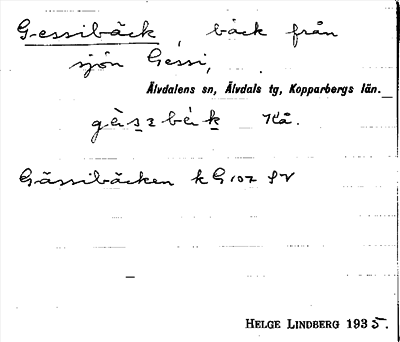 Gessibäck, bäck från
sjön Gessi,
Älvdalens sn, Älvdals tg, Kopparbergs län.
Gässibäcken k G 107 SV
HELGE LINDBERG 1935.